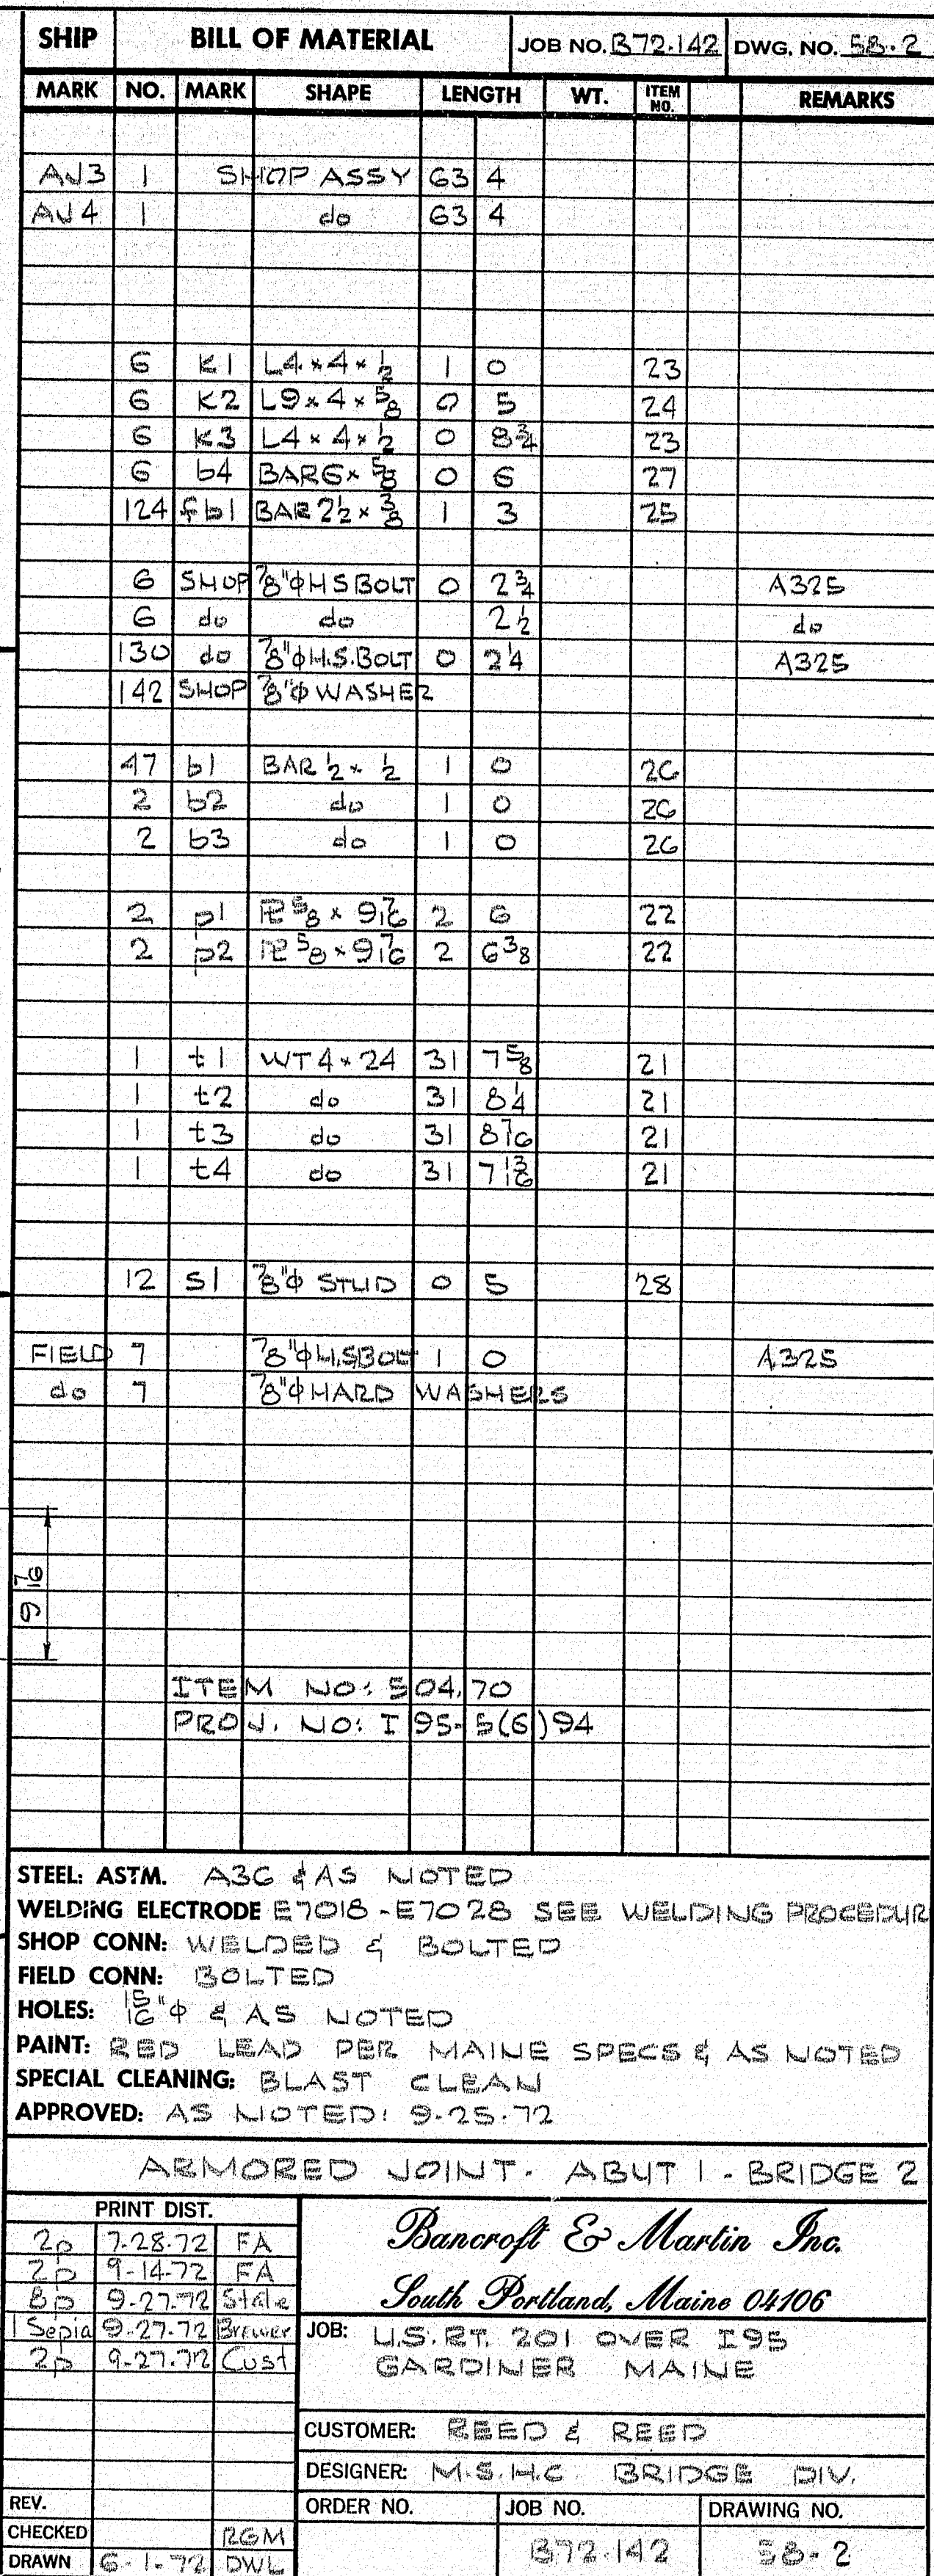 SHIP BILL OF MATERIAL JOB NO. B72-142 DWG. NO. 58-2
MARK NO. MARK SHAPE LENGTH WT. ITEM NO. REMARKS
AJ3 1 SHOP ASSY 63 4
AJ4 1 do 63 4
6 K1 L4 x 4 x 1/2 1 0 23
6 K2 L9 x 4 x 5/8 0 5 24
6 K3 L4 x 4 x 1/2 0 8 3/4 23
6 b4 BAR 6 x 5/8 0 6 27
124 fb1 BAR 2 1/2 x 3/8 1 3 25
6 SHOP 7/8"φ H S BOLT 0 2 3/4 A325
6 do do 2 1/2 do
130 do 7/8"φ H.S. BOLT 0 2 1/4 A325
142 SHOP 7/8"φ WASHER
47 b1 BAR 1/2 x 1/2 1 0 26
2 b2 do 1 0 26
2 b3 do 1 0 26
2 p1 PL 5/8 x 9 7/16 2 6 22
2 p2 PL 5/8 x 9 7/16 2 6 3/8 22
1 t1 WT 4 x 24 31 7 5/8 21
1 t2 do 31 8 1/4 21
1 t3 do 31 8 7/16 21
1 t4 do 31 7 13/16 21
12 S1 7/8"φ STUD 0 5 28
FIELD 7 7/8"φ H.S BOLT 1 0 A325
do 7 7/8"φ HARD WASHERS
9 7/16
ITEM NO: 504.70
PROJ. NO: I 95-5(6)94
STEEL: ASTM. A36 & AS NOTED
WELDING ELECTRODE E7018 - E7028 SEE WELDING PROCEDUR
SHOP CONN: WELDED & BOLTED
FIELD CONN: BOLTED
HOLES: 15/16"φ & AS NOTED
PAINT: RED LEAD PER MAINE SPECS & AS NOTED
SPECIAL CLEANING: BLAST CLEAN
APPROVED: AS NOTED: 9-25-72
ARMORED JOINT - ABUT 1 - BRIDGE 2
PRINT DIST.
2p 7-28-72 FA
2p 9-14-72 FA
8p 9-27-72 State
1 Sepia 9-27-72 Brewer
2p 9-27-72 Cust
Bancroft & Martin Inc.
South Portland, Maine 04106
JOB: U.S. RT. 201 OVER I95
GARDINER MAINE
CUSTOMER: REED & REED
DESIGNER: M.S.H.C. BRIDGE DIV.
REV.
CHECKED RGM
DRAWN 6-1-72 DWL
ORDER NO. JOB NO. DRAWING NO.
B72-142 58-2